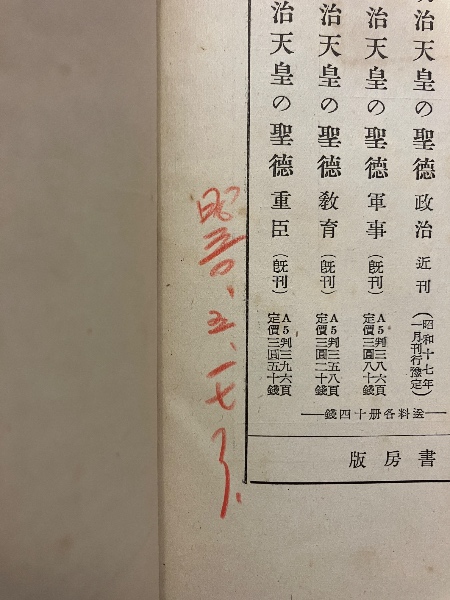 明治天皇の聖德 政治 近刊 (昭和十七年
一月刊行豫定)
治天皇の聖德 軍事 (既刊) A5判三八六頁
定價三圓三十錢
治天皇の聖德 教育 (既刊) A5判三五八頁
定價三圓二十錢
治天皇の聖德 重臣 (既刊) A5判三九六頁
定價三圓五十錢
送料各册十四錢
書房版
昭三〇、五、一七了、